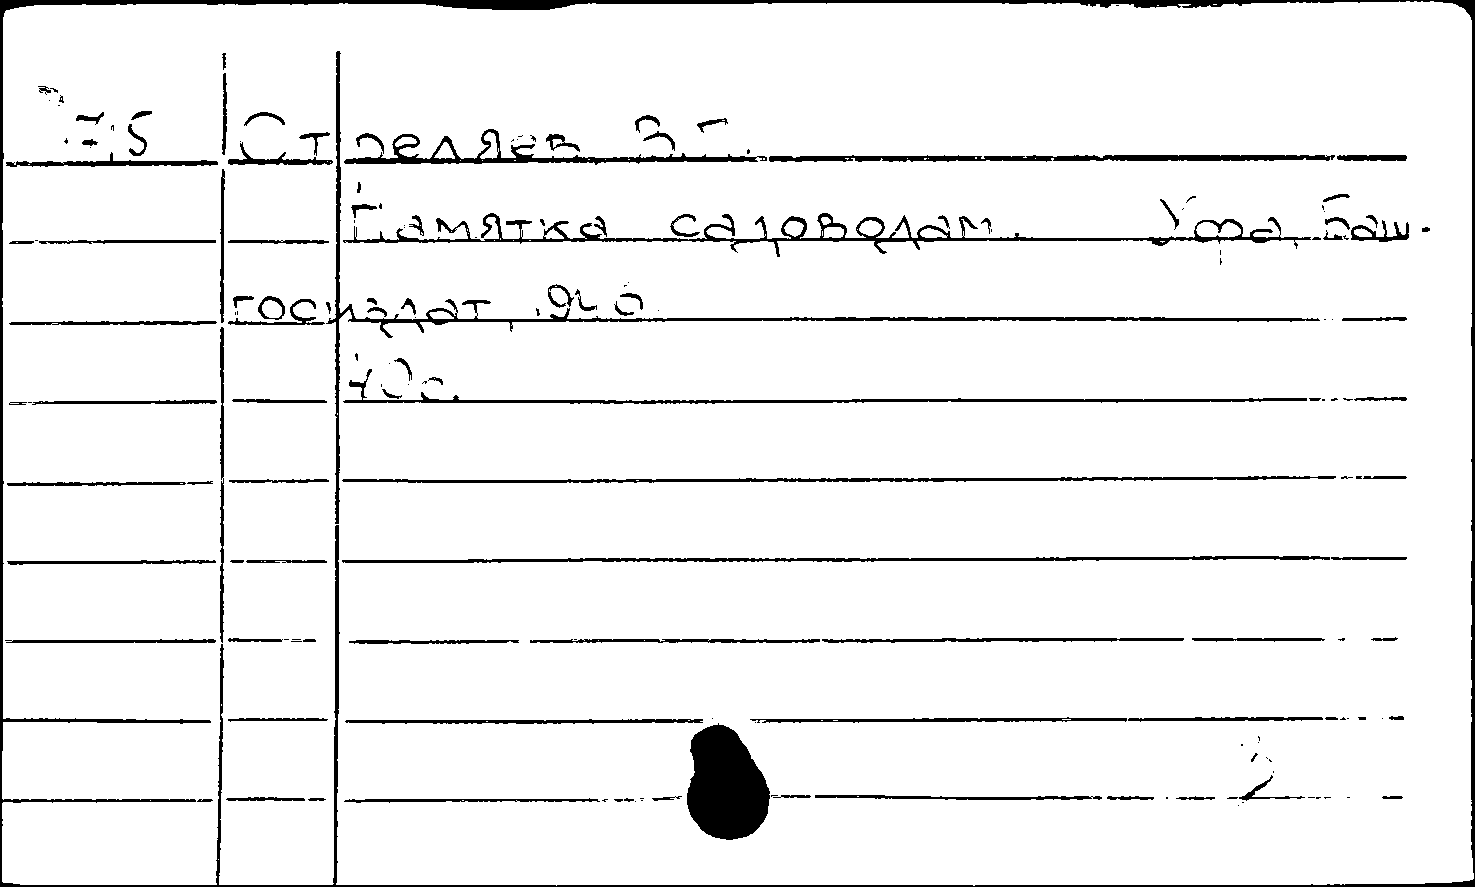 Стреляев В.Г.
Памятка садоводам. Уфа, Баш-
госиздат,
40с.